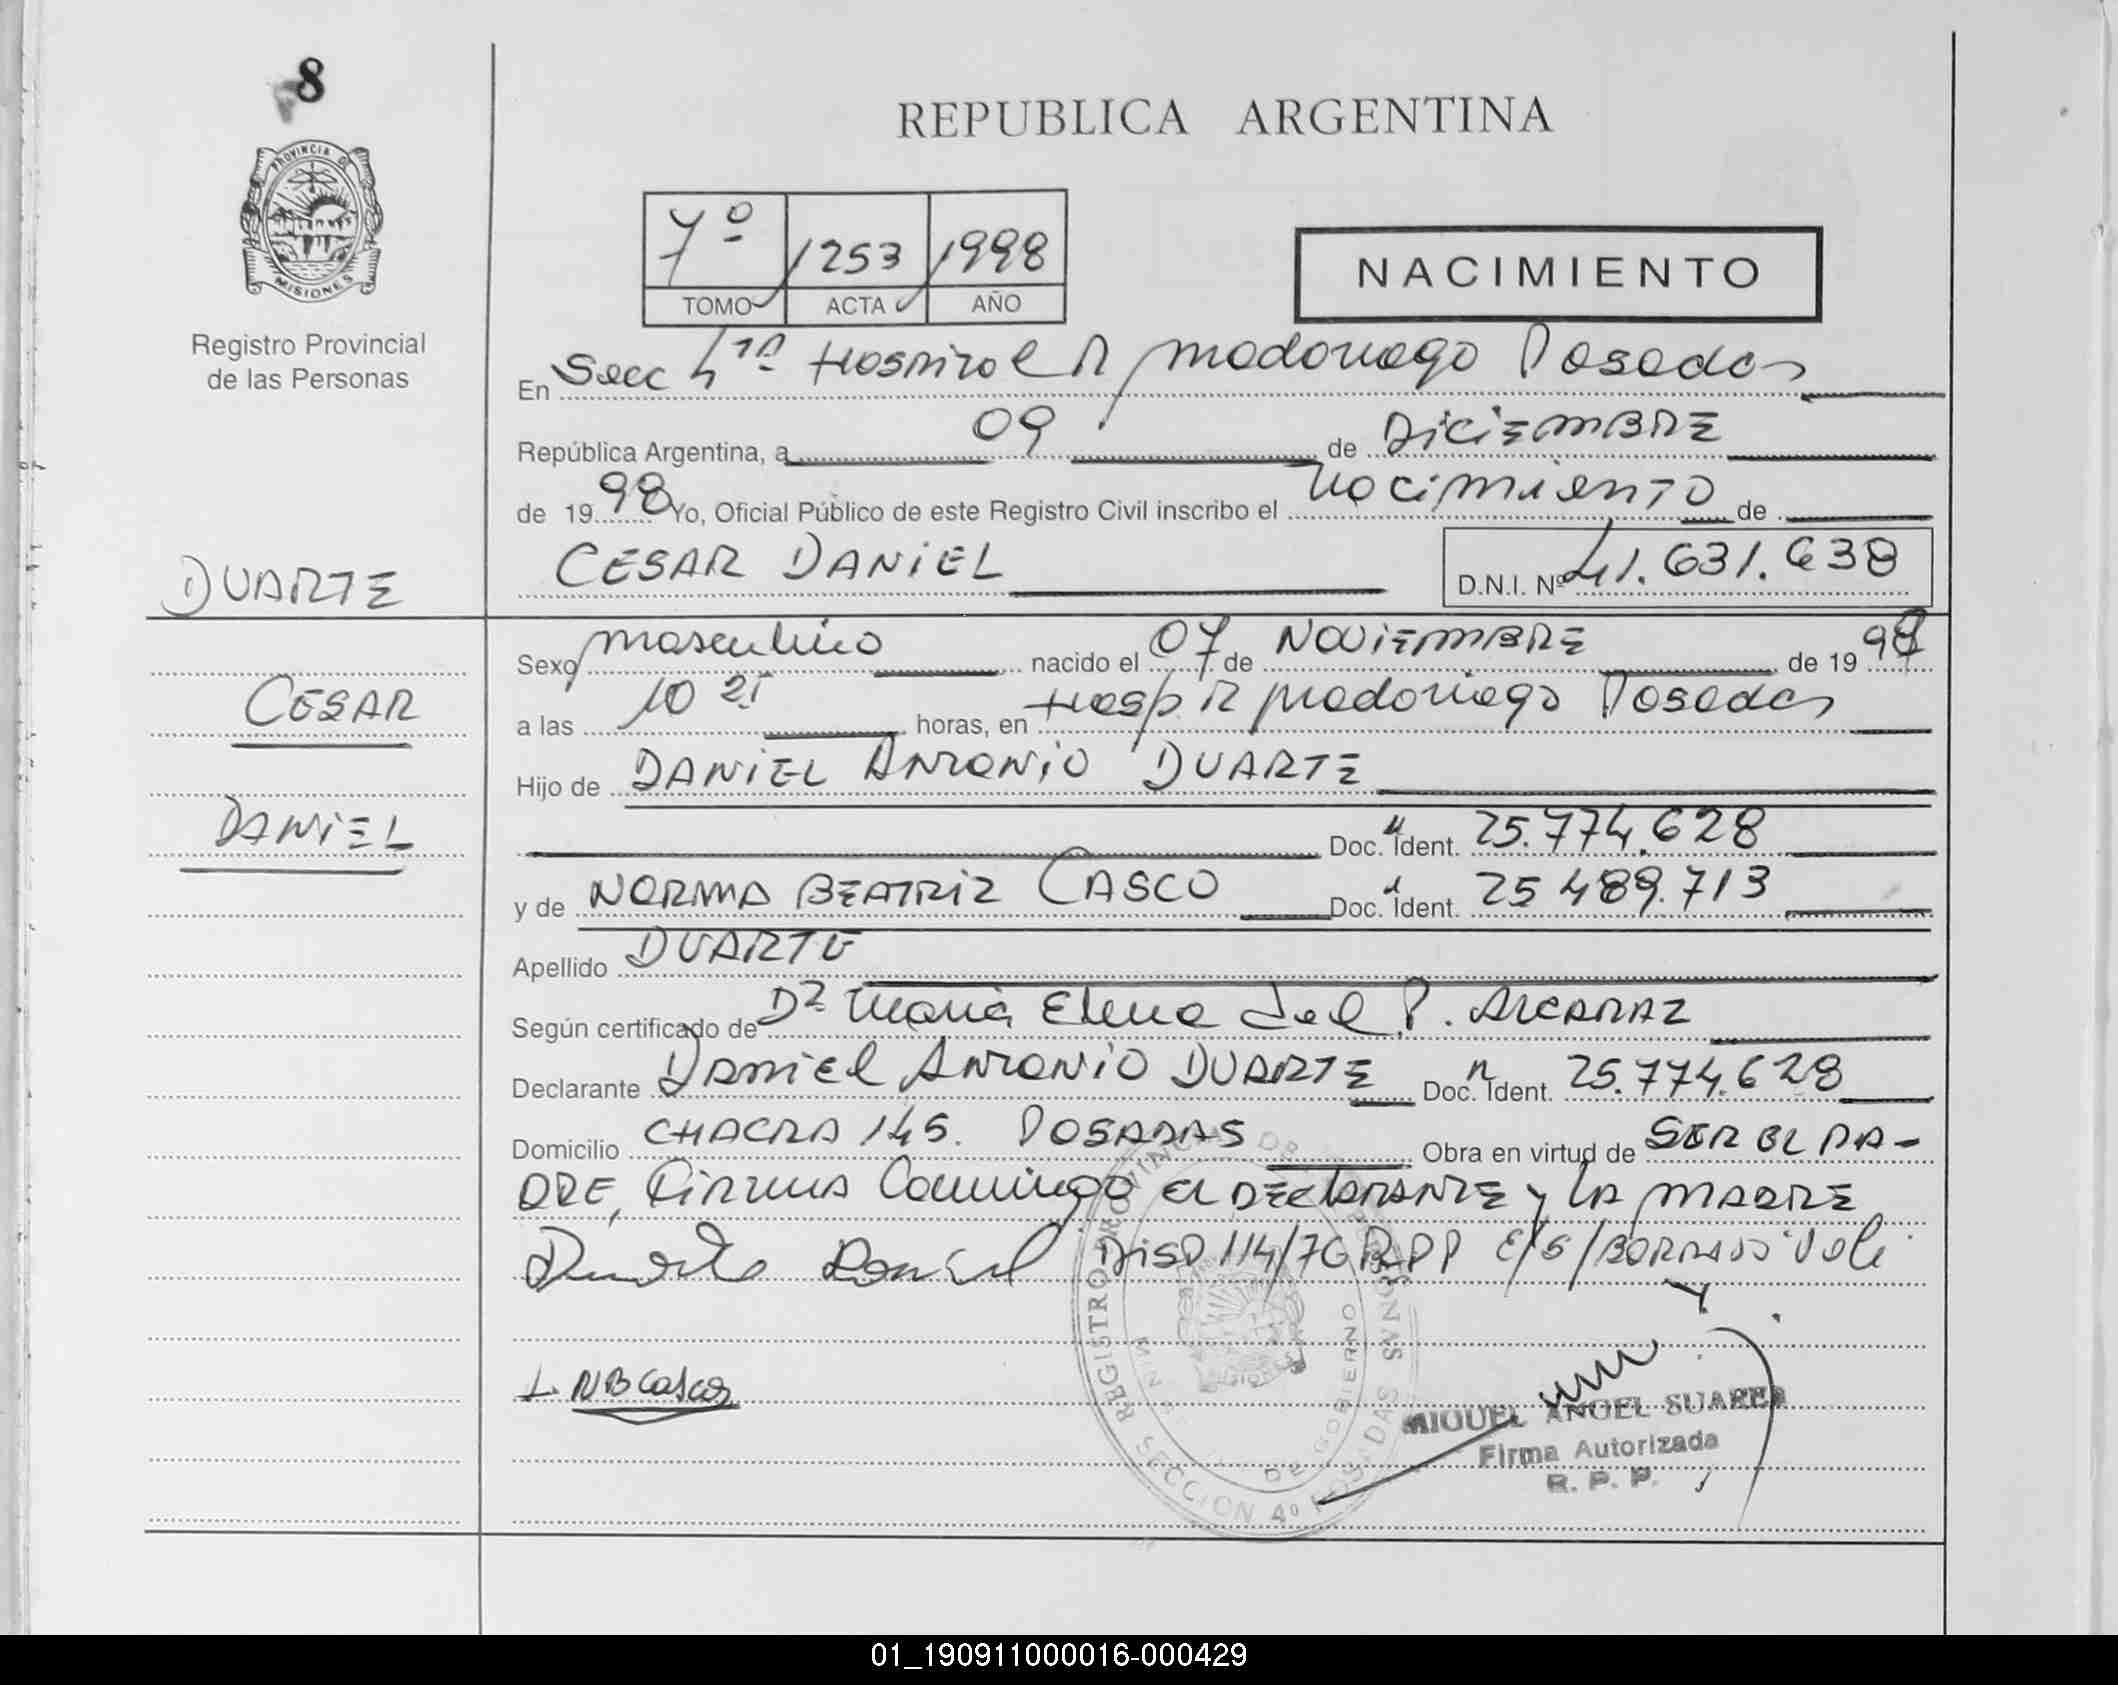 8
REPUBLICA ARGENTINA
PROVINCIA DE
MISIONES
Registro Provincial
de las Personas
7º 1253 1998
TOMO ACTA AÑO
NACIMIENTO
En Secc 4ta Hospital R Madariaga Posadas
República Argentina, a 09 de DiCiEMBRE
de 1998 Yo, Oficial Público de este Registro Civil inscribo el Nacimiento de
DUARTE
CESAR DANiEL D.N.I. Nº 41.631.638
Sexo masculino nacido el 07 de NOViEMBRE de 1998
CESAR
a las 10 21 horas, en Hosp R Madariaga Posadas
Hijo de DANiEL ANTONiO DUARTE
DANiEL
Doc. Ident. 25.774.628
y de NORMA BEATRiZ CASCO Doc. Ident. 25 489.713
Apellido DUARTE
Según certificado de Dra Maria Elena del P. ALCARAZ
Declarante DANiEL ANTONiO DUARTE Doc. Ident. 25.774.628
Domicilio CHACRA 145. POSADAS Obra en virtud de SER EL PA-
DRE, Firman Conmigo el DEClARANTE y lA MADRE
Duarte Daniel Disp 114/76 RPP E/S/BORRADO Vale
N B Casco
REGISTRO PROVINCIAL DE LAS PERSONAS
SECCION 4º POSADAS
DE GOBIERNO
MIGUEL ANGEL SUAREZ
Firma Autorizada
R. P. P.
01_190911000016-000429